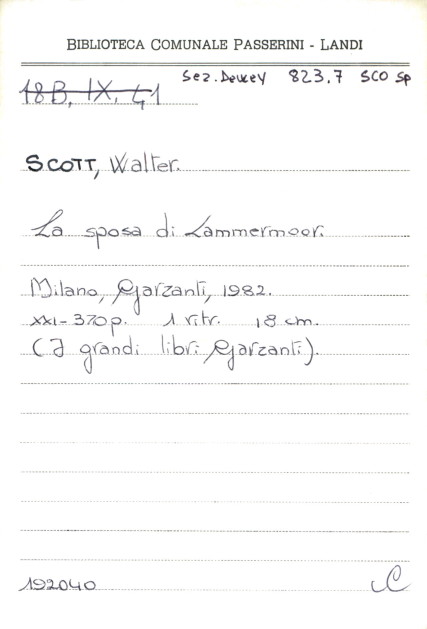 BIBLIOTECA COMUNALE PASSERINI - LANDI
Sez. Dewey 823.7 SCO Sp
18B. IX. 41
SCOTT, Walter.
La sposa di Lammermoor.
Milano, Garzanti, 1982.
XXI-370 p. 1 ritr. 18 cm.
(I grandi libri Garzanti).
192040
C